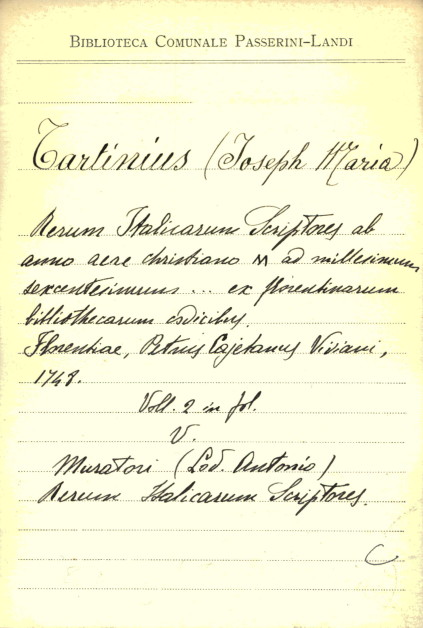 BIBLIOTECA COMUNALE PASSERINI-LANDI
Tartinius (Joseph Maria)
Rerum Italicarum Scriptores ab
anno aere christiano M ad millesimum
sexcentesimum ... ex florentinarum
bibliothecarum codicibus.
Florentiae, Petrus Cajetanus Viviani,
1748.
Voll. 2 in fol.
V.
Muratori (Lod. Antonio)
Rerum Italicarum Scriptores.
C